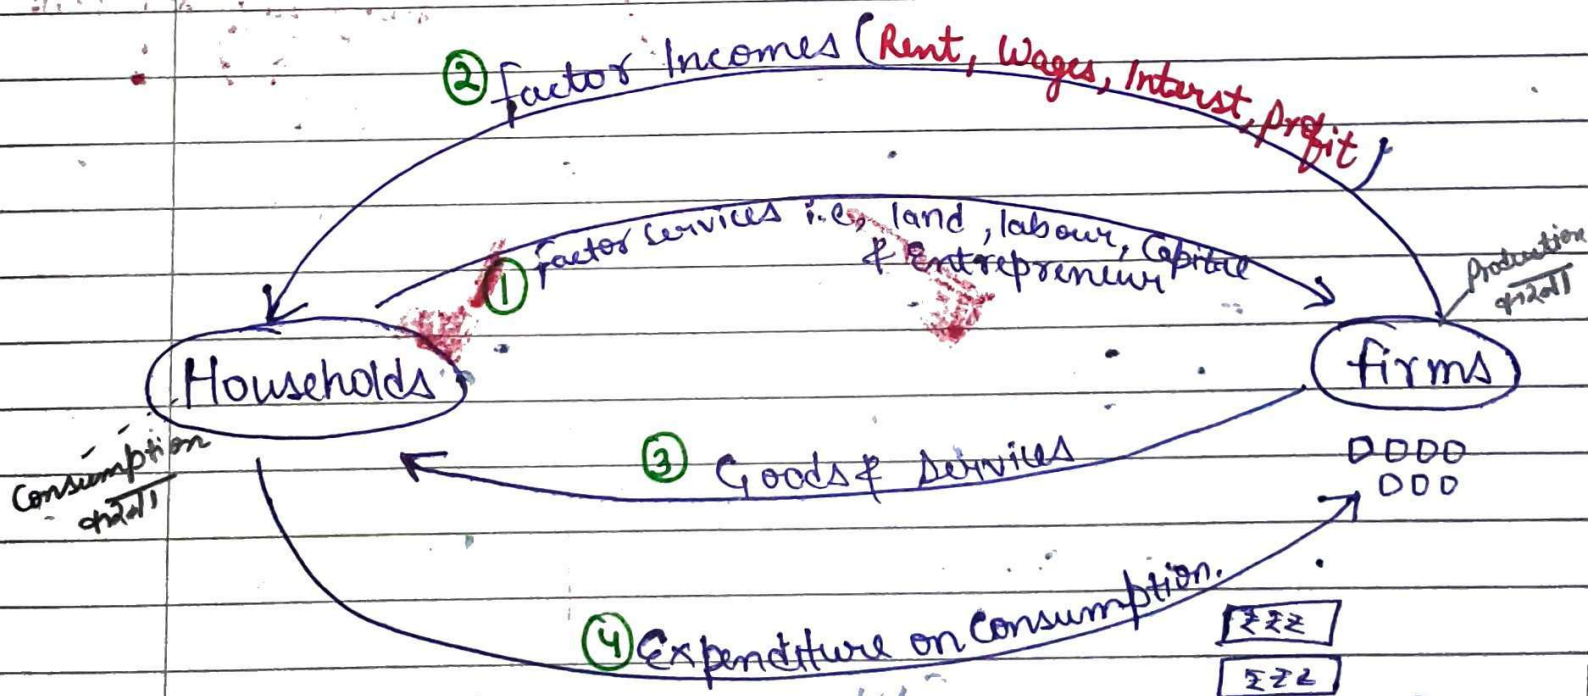 ② Factor Incomes (Rent, Wages, Interst, profit)
① Factor services i.e, land, labour, Capital
& Entrepreneur
Production
करना
Households
firms
Consumption
करना
③ Goods & Services
④ Expenditure on Consumption.
₹₹₹
₹₹₹